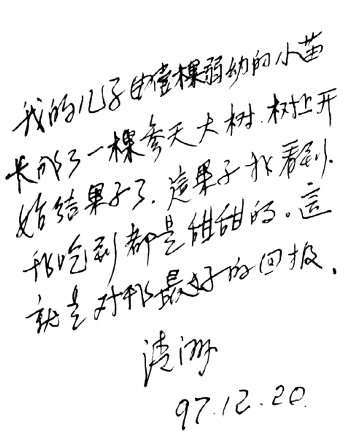 我的儿子由一棵弱幼的小苗
长成了一棵参天大树.树上开
始结果子了.这果子我看到.
我吃到都是甜甜的。这
就是对我最好的回报.
97.12.20